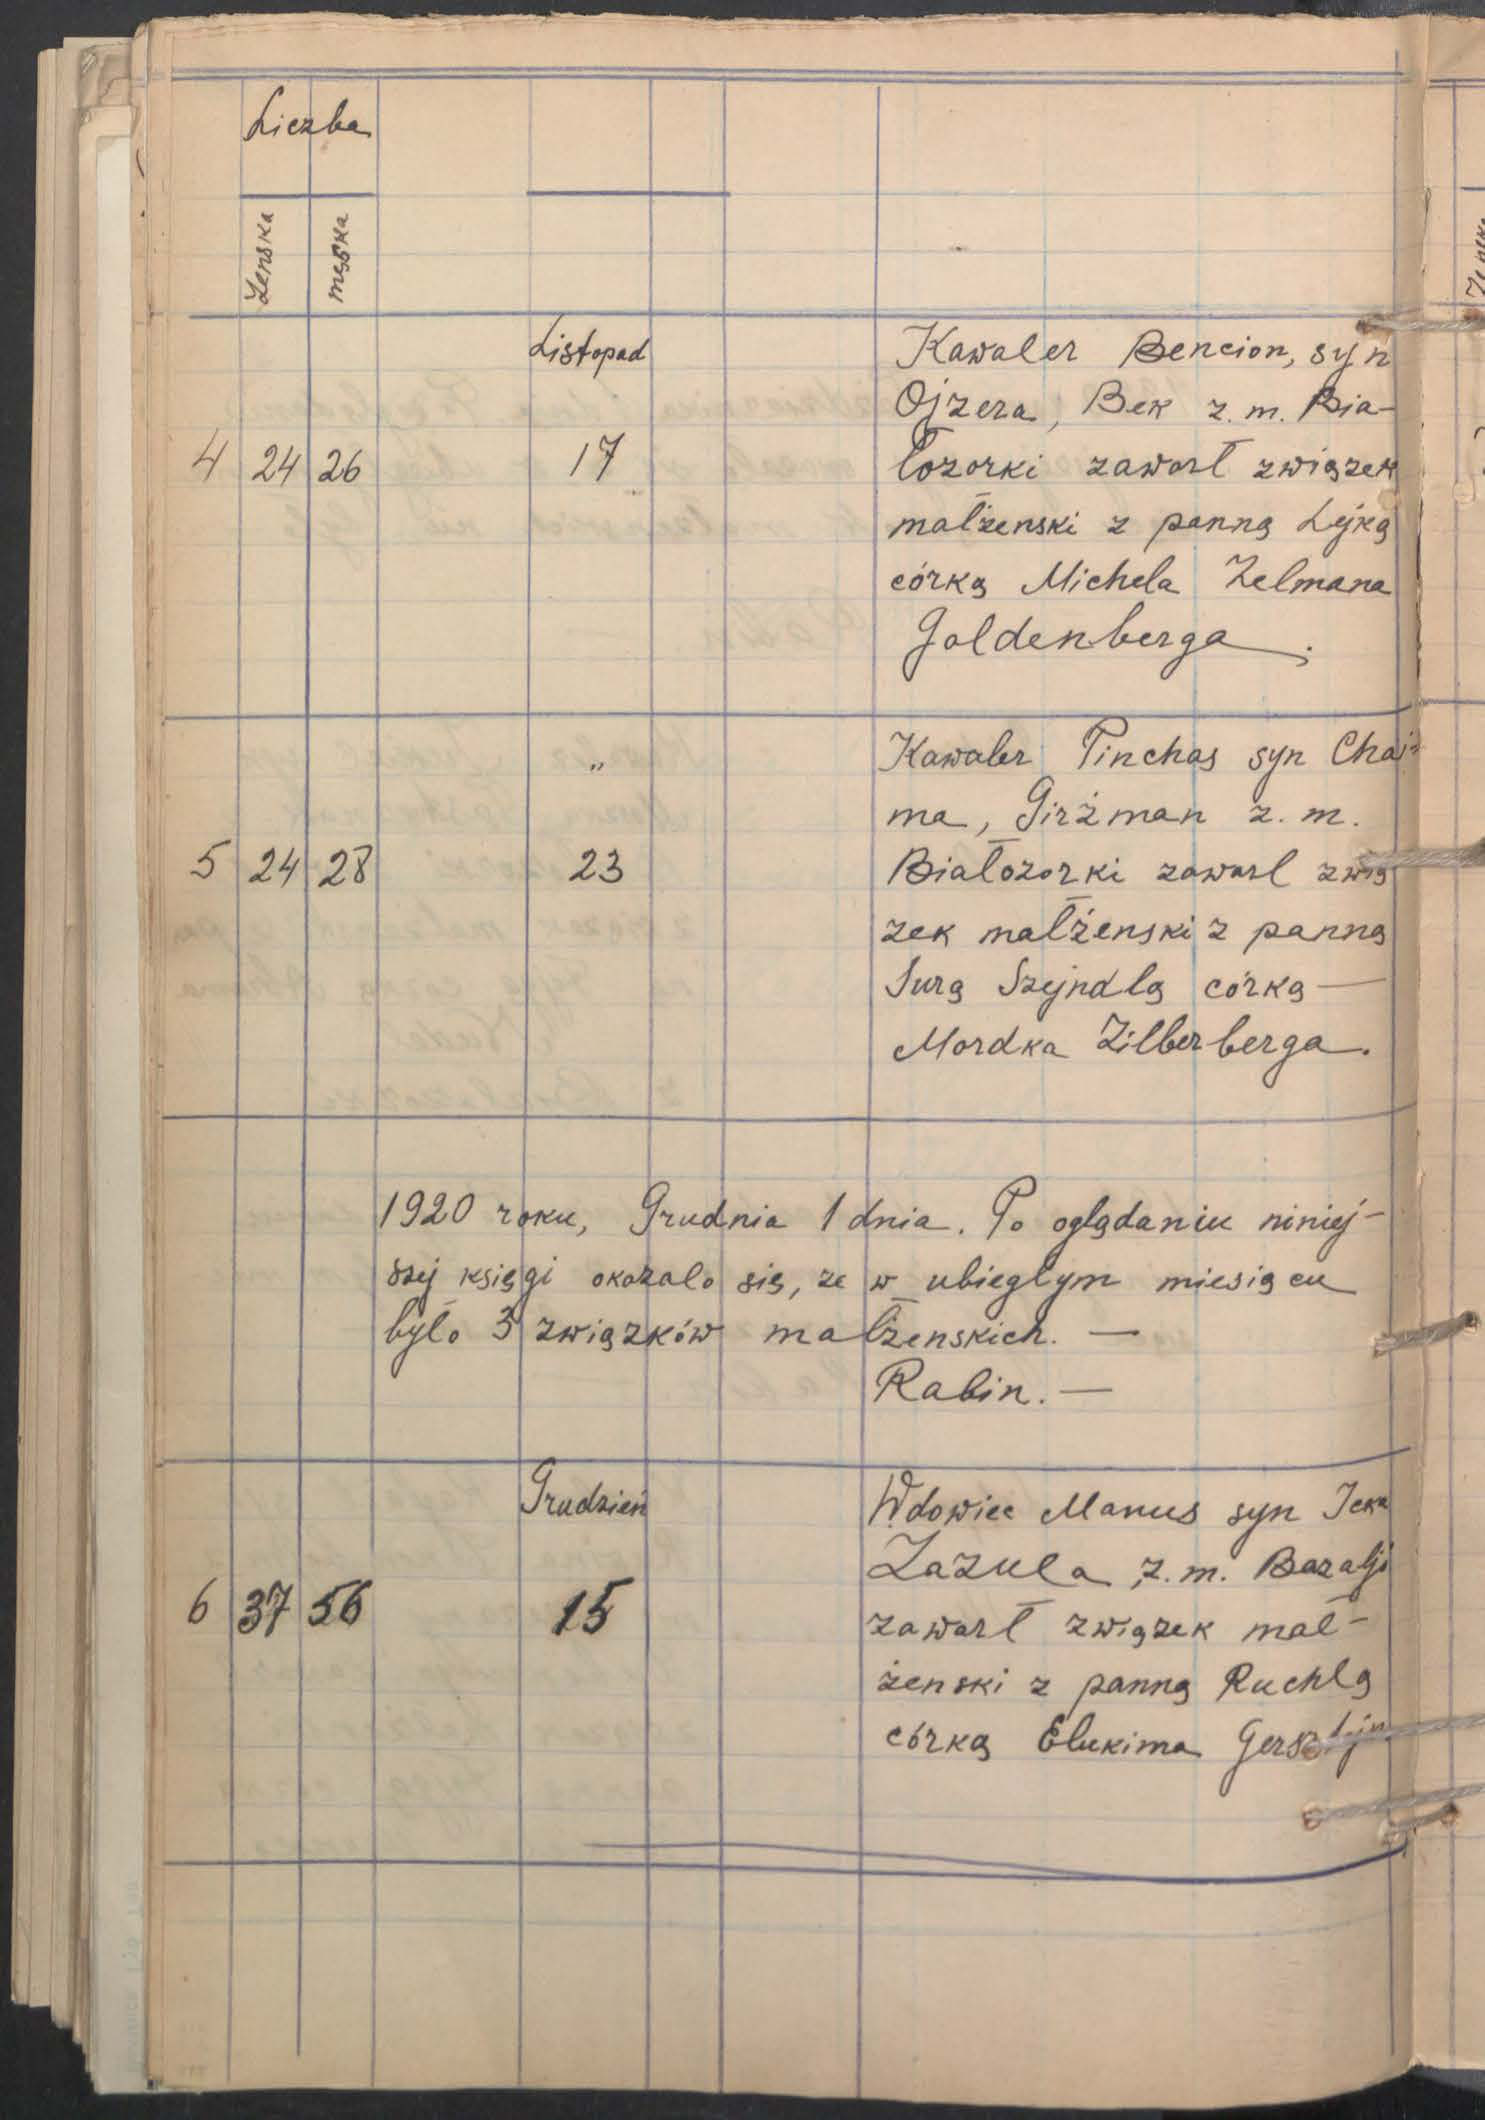 Liczba
Żenska
męska
Listopad
Kawaler Bencion, syn
Ojzera, Bek z. m. Bia-
4 24 26 17
łozorki zawarł związek
małżenski z panną Lejką
córką Michela Zelmana
Goldenberga.
Kawaler Pinchas syn Chai-
„
ma, Girżman z. m.
5 24 28 23
Białozorki zawarł zwią
zek małżenski z panną
Surą Szejndlą córką —
Mordka Zilberberga.
1920 roku, Grudnia 1 dnia. Po oglądaniu niniej-
szej księgi okazalo się, ze w ubieglym miesiącu
było 3 związków małżenskich. —
Rabin. —
Grudzień
Wdowiec Manus syn Icka
Zazula, z. m. Bazalji
6 37 56 15
zawarł związek mał-
żenski z panną Ruchlą
córką Elukima